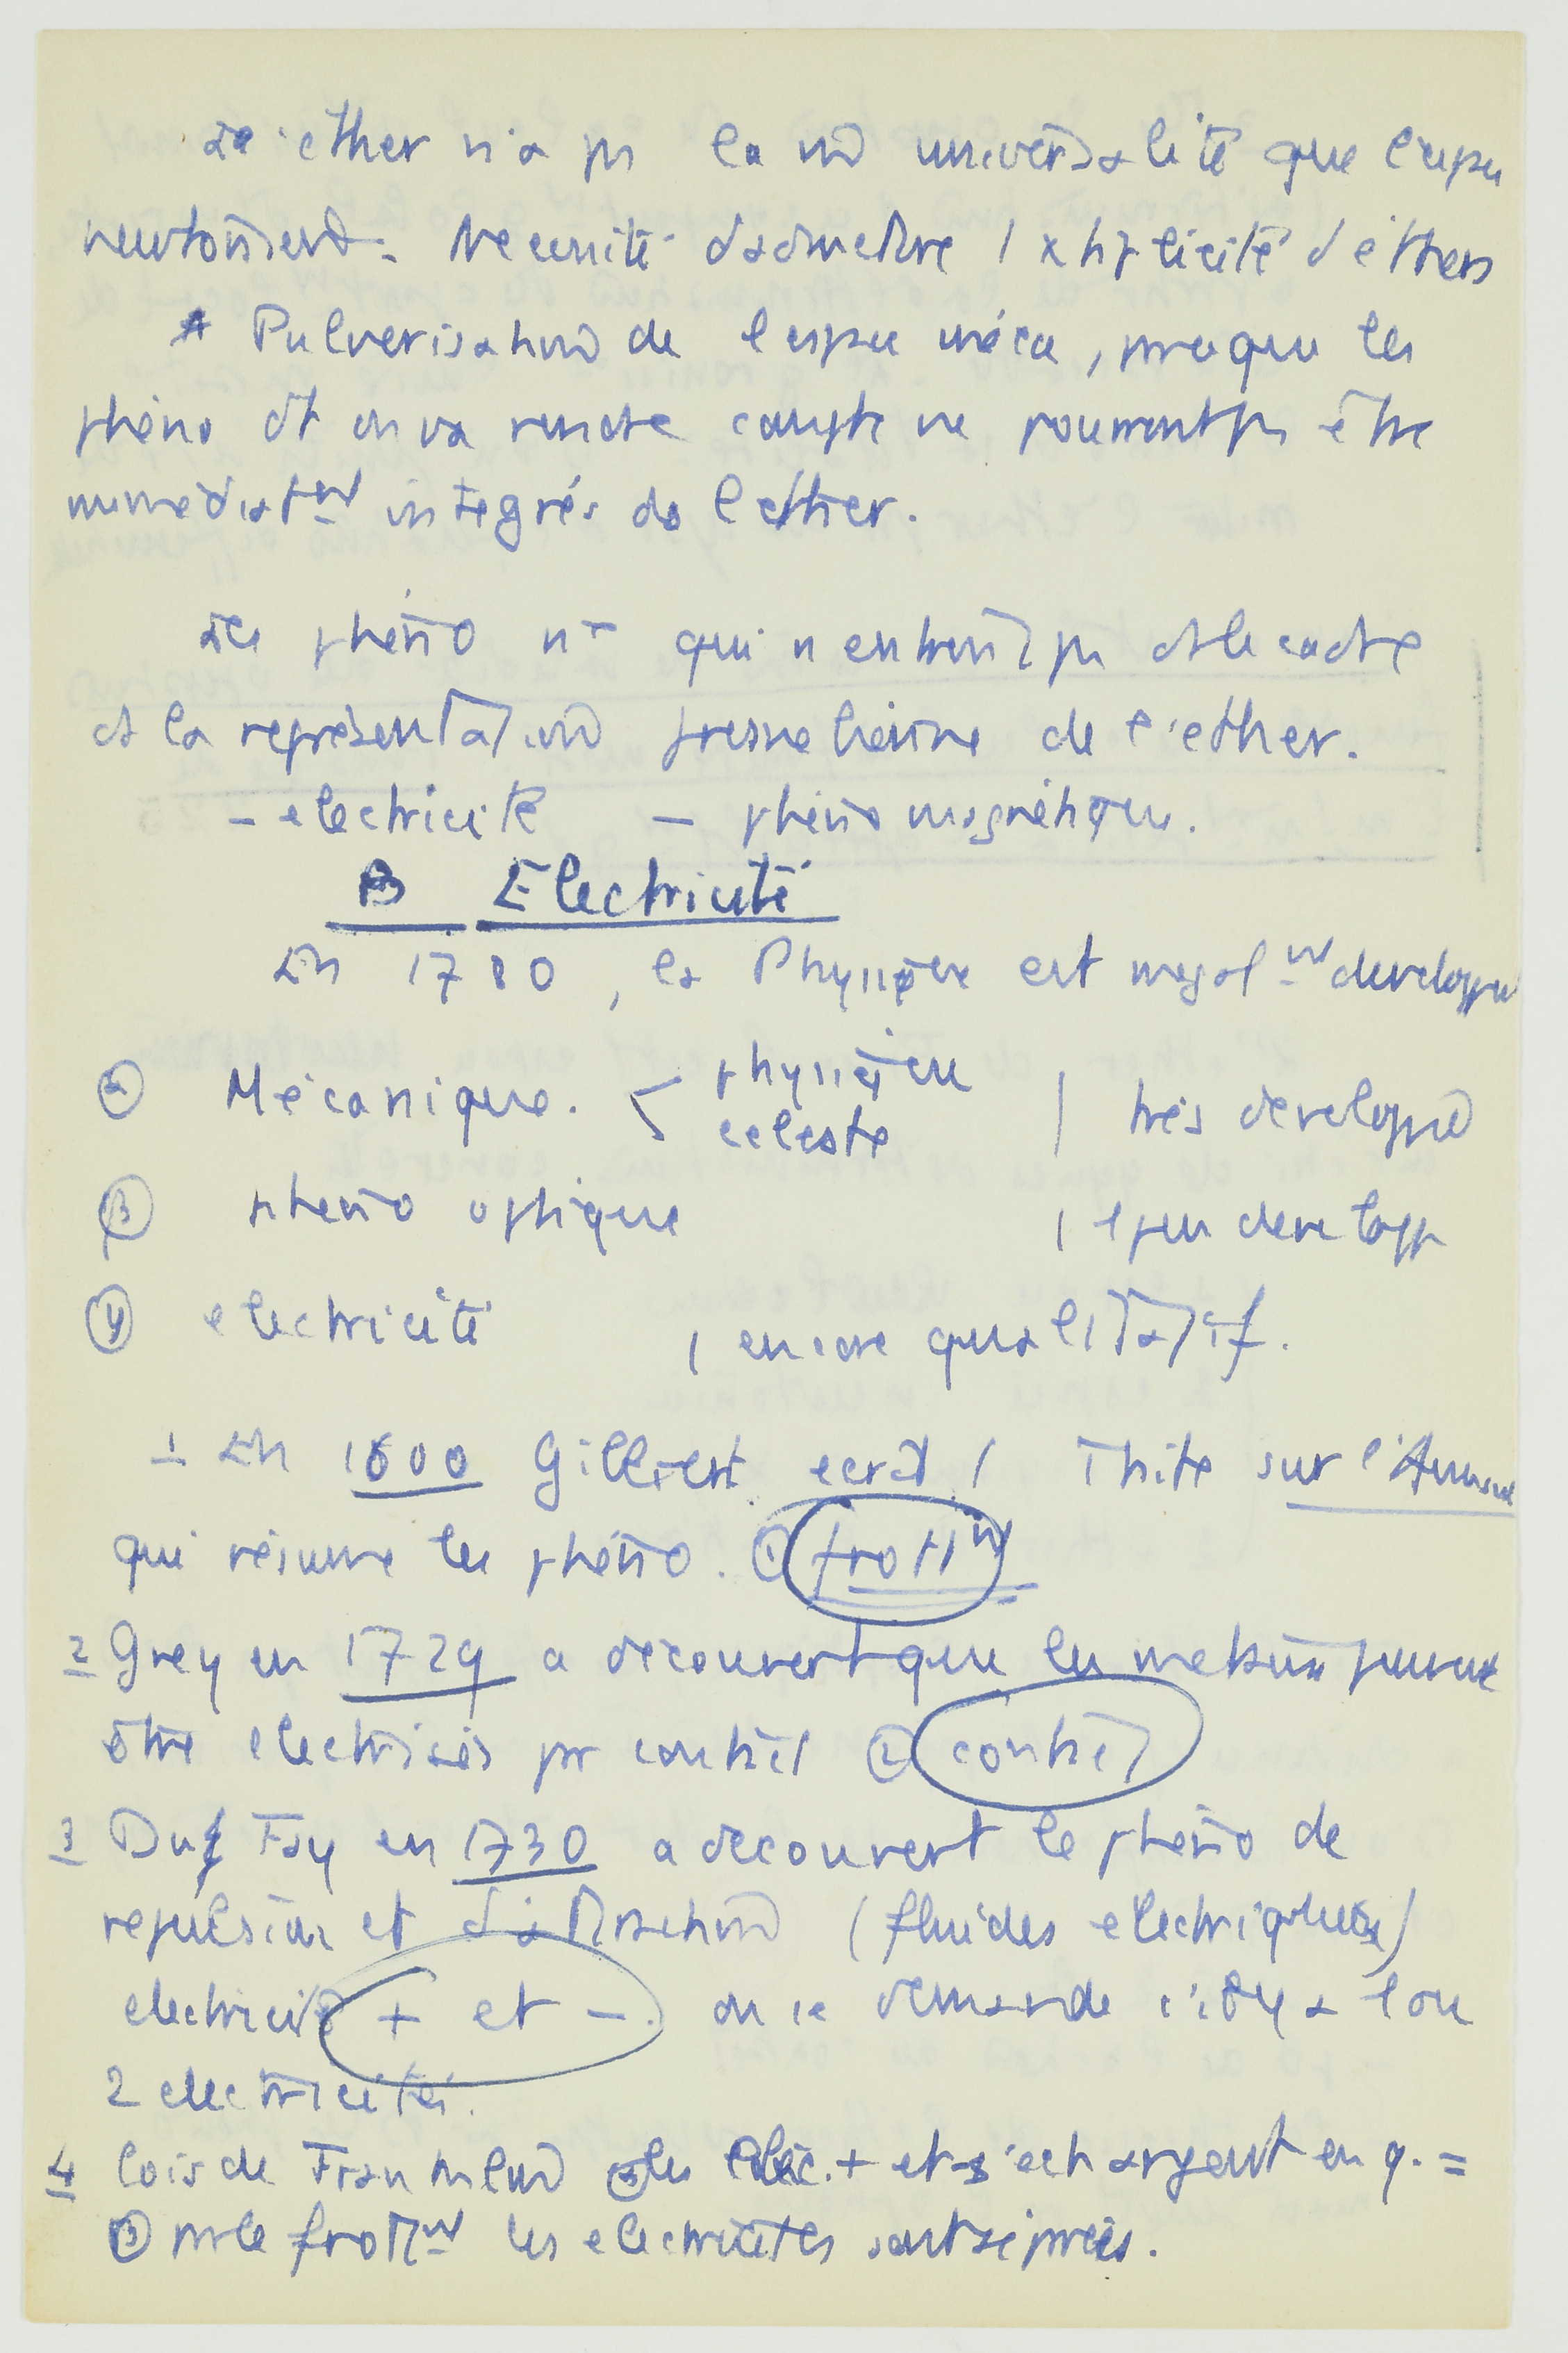 Le éther n'a ps la m̂ universalité que l'espa
newtonien. Necessité d'admettre / xtiplicité d'éthers
* Pulverisation de l'espace méca, presque les
phéno dt on va rendre compte ne pourront ps être
immédiatmt intégrés ds l'ether.
Les phéno qui n'entront ps ds le cadre
ds la représentation fresnelienne de l'ether.
– electricité – phéno magnétique.
B Electricité
En 1780, la Physique est inégalmt developpé
α Mécanique. < physique
celeste | très developpé
β phéno optique | peu develop
γ electricité | encore qualitatif.
1 En 1600 Gilbert ecrit / Traité sur l'Aimant
qui résume les phéno. ① frottmt
2 Grey en 1729 a découvert que les métaux peuvent
être electrisés pr contact ② contact
3 Duf Fay en 1730 a decouvert le phéno de
repulsion et d'attraction (fluides electriques)
electricité + et –. on se demande s'il y a 1 ou
2 electricités.
4 lois de Franklin ⓐ les elec. + et – s'echangent en q. =
ⓑ pr le frottmt les electricités sont séparées.